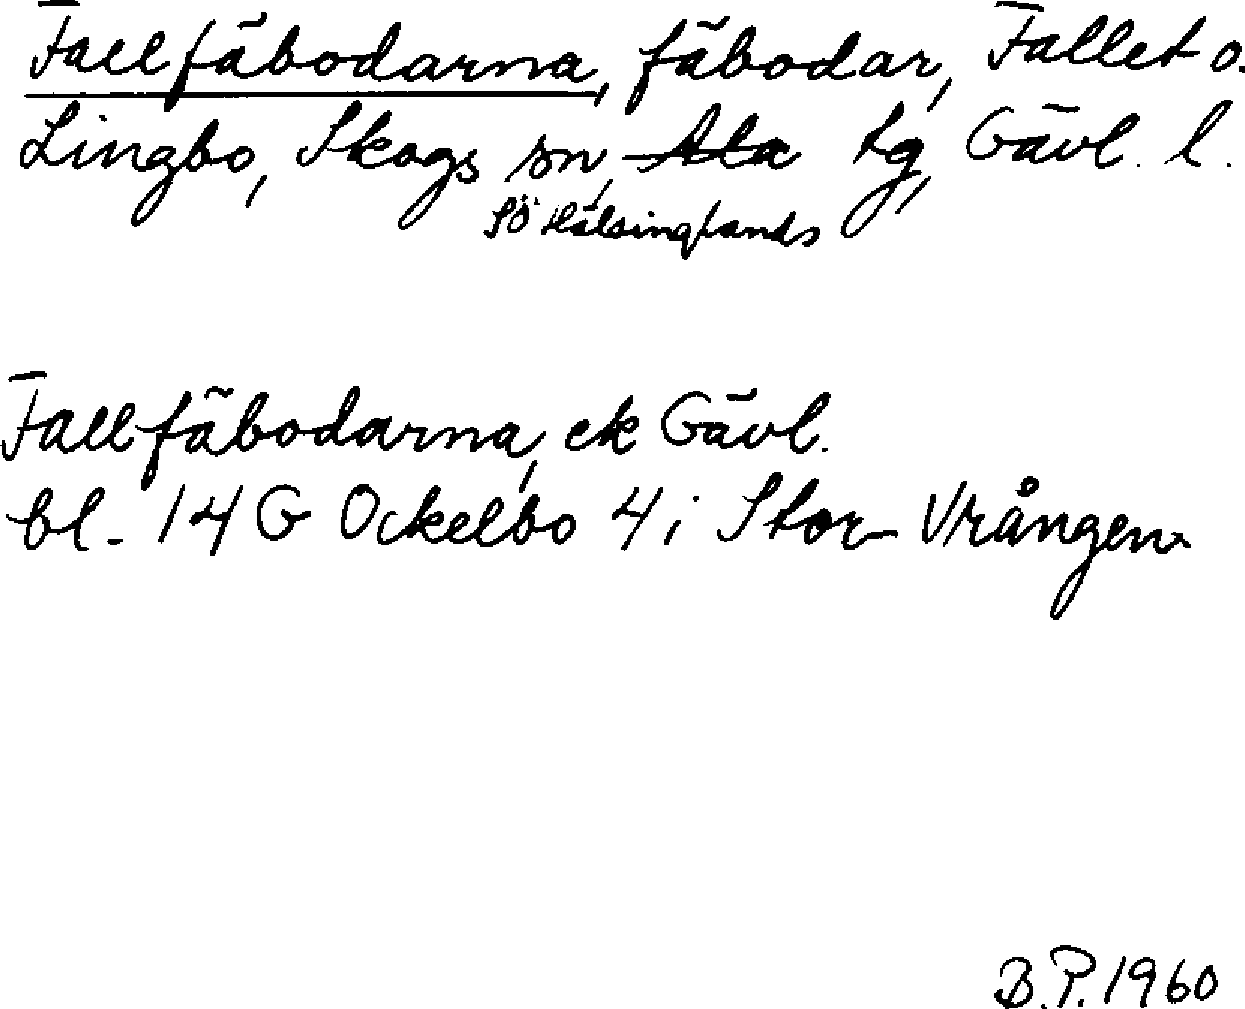 Fallfäbodarna, fäbodar, Fallet o.
Lingbo, Skogs sn, Ala tg, Gävl. l.
Sö Hälsinglands
Fallfäbodarna, ek Gävl.
bl. 14 G Ockelbo 4 i Stor-Vrången.
B.P. 1960